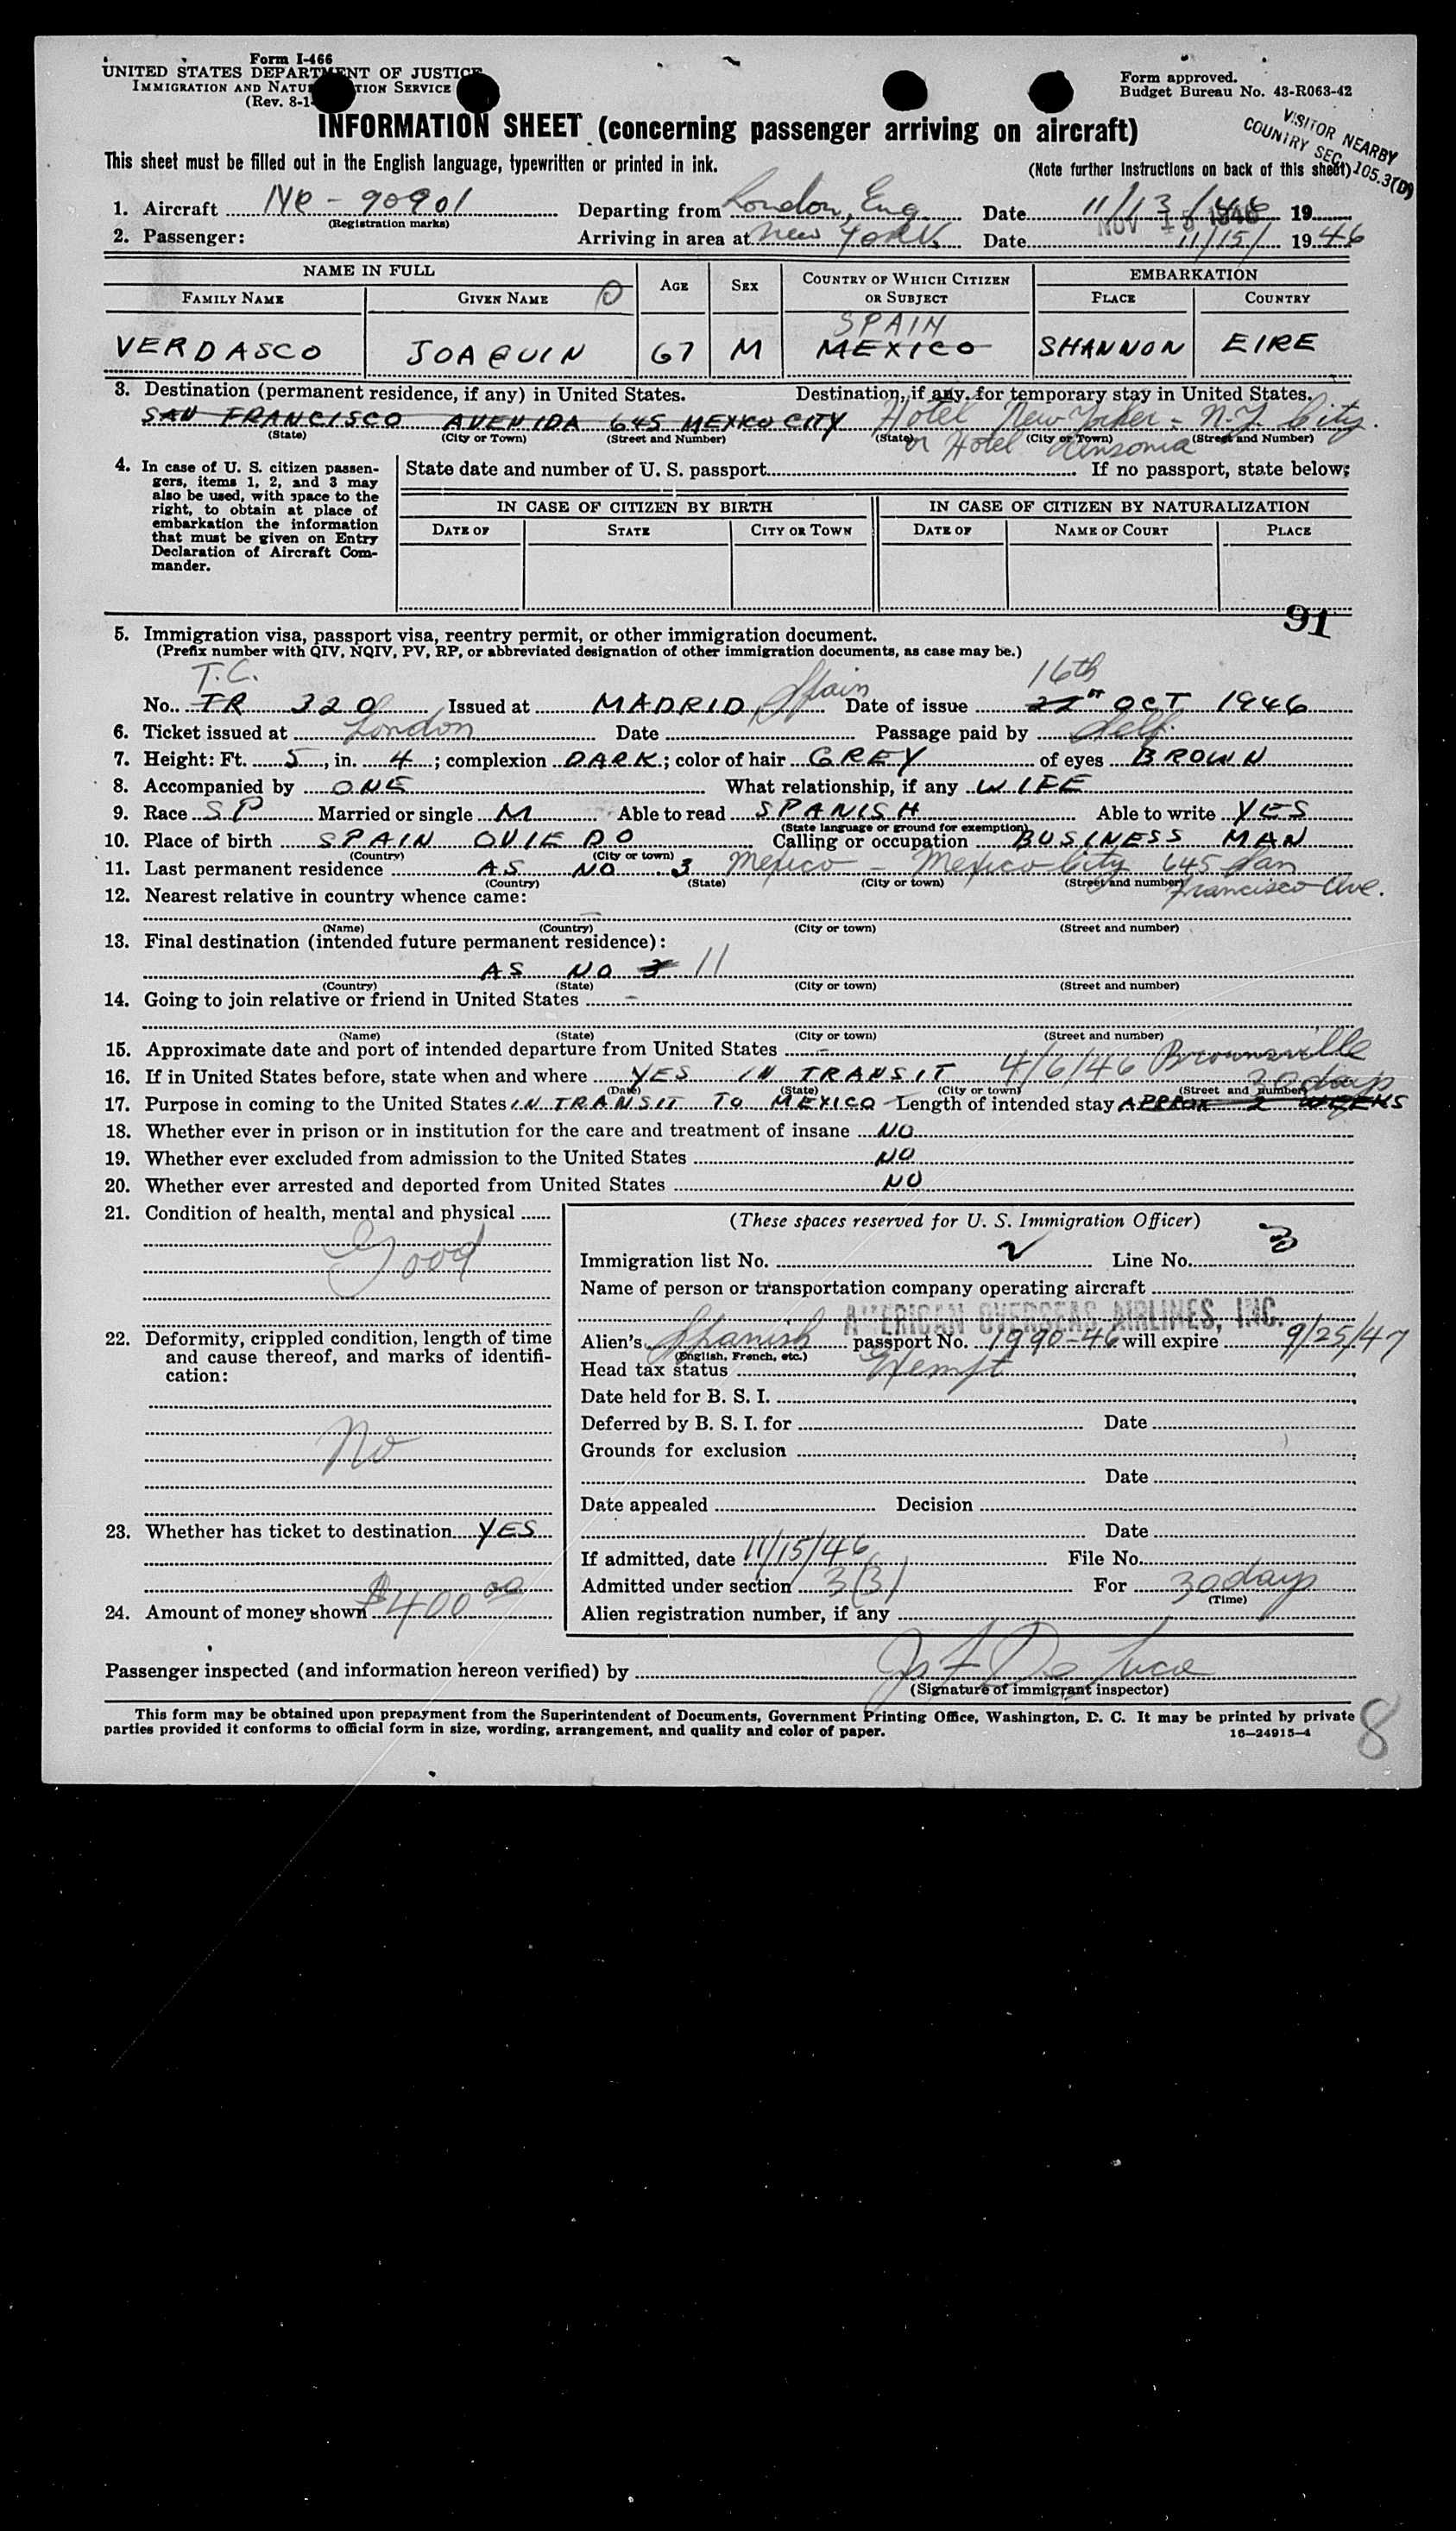 Form I-466
UNITED STATES DEPARTMENT OF JUSTICE
IMMIGRATION AND NATURALIZATION SERVICE
(Rev. 8-1
Form approved.
Budget Bureau No. 43-R063-42
INFORMATION SHEET (concerning passenger arriving on aircraft)
VISITOR NEARBY
COUNTRY SEC. 105.3(D)
This sheet must be filled out in the English language, typewritten or printed in ink.
(Note further instructions on back of this sheet)
1. Aircraft NC-90901 Departing from London, Eng. Date 11/13/46 19
(Registration marks)
NOV 15 1946
2. Passenger: Arriving in area at New York. Date 11/15/ 1946
NAME IN FULL
AGE SEX COUNTRY OF WHICH CITIZEN OR SUBJECT EMBARKATION
FAMILY NAME GIVEN NAME PLACE COUNTRY
SPAIN
VERDASCO JOAQUIN 67 M MEXICO SHANNON EIRE
3. Destination (permanent residence, if any) in United States. Destination, if any, for temporary stay in United States.
SAN FRANCISCO AVENIDA 645 MEXICO CITY Hotel New Yorker - N.Y. City.
(State) (City or Town) (Street and Number) (State) (City or Town) (Street and Number)
or Hotel Ansonia
4. In case of U. S. citizen passengers, items 1, 2, and 3 may also be used, with space to the right, to obtain at place of embarkation the information that must be given on Entry Declaration of Aircraft Commander.
State date and number of U. S. passport If no passport, state below:
IN CASE OF CITIZEN BY BIRTH IN CASE OF CITIZEN BY NATURALIZATION
DATE OF STATE CITY OR TOWN DATE OF NAME OF COURT PLACE
91
5. Immigration visa, passport visa, reentry permit, or other immigration document.
(Prefix number with QIV, NQIV, PV, RP, or abbreviated designation of other immigration documents, as case may be.)
T.C. 16th
No. TR 320 Issued at MADRID, Spain Date of issue OCT 1946
6. Ticket issued at London Date Passage paid by Self.
7. Height: Ft. 5, in. 4; complexion DARK; color of hair GREY of eyes BROWN
8. Accompanied by ONE What relationship, if any WIFE
9. Race SP Married or single M Able to read SPANISH Able to write YES
(State language or ground for exemption)
10. Place of birth SPAIN OVIEDO Calling or occupation BUSINESS MAN
(Country) (City or town)
11. Last permanent residence AS NO. 3 Mexico - Mexico City 645 San
(Country) (State) (City or town) (Street and number)
Francisco Ave.
12. Nearest relative in country whence came:
(Name) (Country) (City or town) (Street and number)
13. Final destination (intended future permanent residence):
AS NO 3 11
(Country) (State) (City or town) (Street and number)
14. Going to join relative or friend in United States
(Name) (State) (City or town) (Street and number)
15. Approximate date and port of intended departure from United States
16. If in United States before, state when and where YES IN TRANSIT 4/6/46 Brownsville
(Date) (State) (City or town) (Street and number)
30 days
17. Purpose in coming to the United States IN TRANSIT TO MEXICO Length of intended stay APPROX 2 WEEKS
18. Whether ever in prison or in institution for the care and treatment of insane NO
19. Whether ever excluded from admission to the United States NO
20. Whether ever arrested and deported from United States NO
21. Condition of health, mental and physical
Good
22. Deformity, crippled condition, length of time and cause thereof, and marks of identification:
No
23. Whether has ticket to destination YES
24. Amount of money shown $400 00
(These spaces reserved for U. S. Immigration Officer)
Immigration list No. 2 Line No. 3
Name of person or transportation company operating aircraft
AMERICAN OVERSEAS AIRLINES, INC.
Alien's Spanish passport No. 1990-46 will expire 9/25/47
(English, French, etc.)
Head tax status Exempt
Date held for B. S. I.
Deferred by B. S. I. for Date
Grounds for exclusion
Date
Date appealed Decision
Date
If admitted, date 11/15/46 File No.
Admitted under section 3(3) For 30 days
(Time)
Alien registration number, if any
Passenger inspected (and information hereon verified) by
(Signature of immigrant inspector)
This form may be obtained upon prepayment from the Superintendent of Documents, Government Printing Office, Washington, D. C. It may be printed by private
parties provided it conforms to official form in size, wording, arrangement, and quality and color of paper.
16-24915-4
8